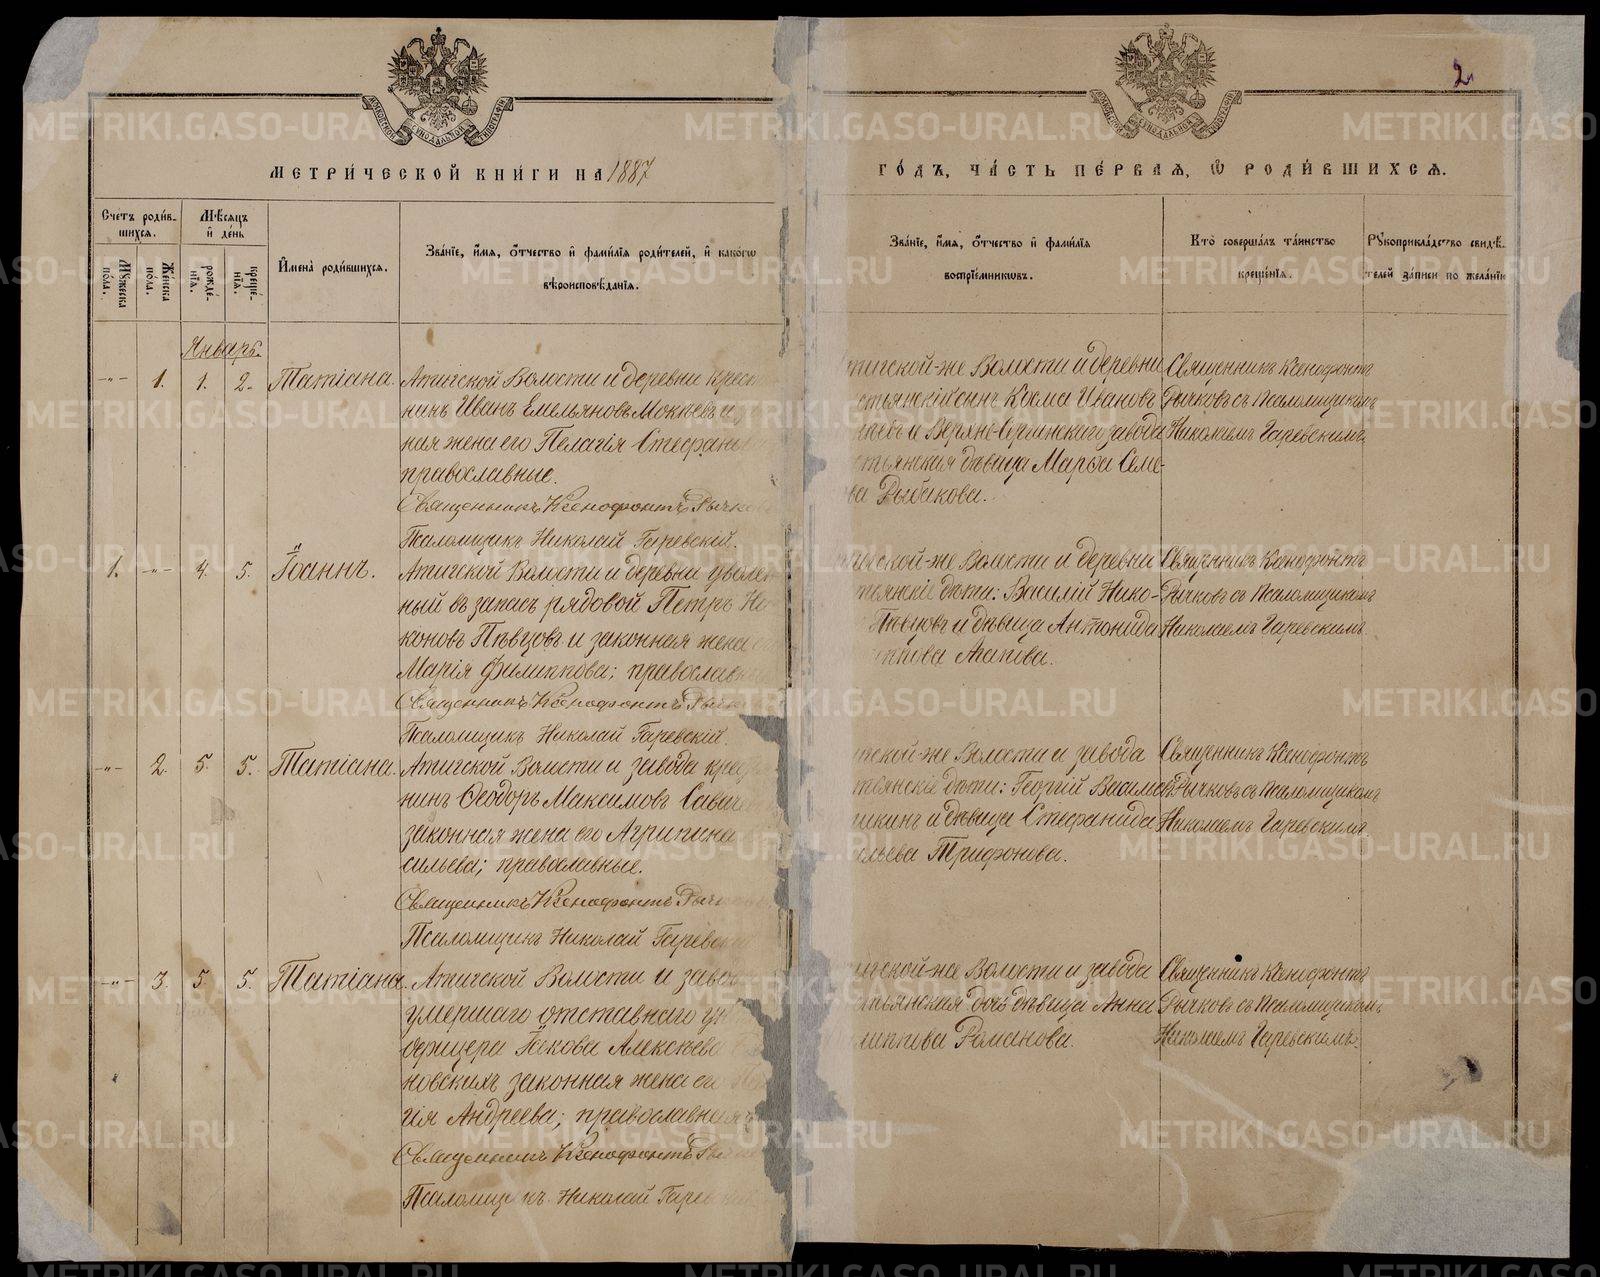 2
МЕТРИ́ЧЕСКОЙ КНИ́ГИ НА 1887
ГО́ДЪ, ЧА́СТЬ ПЕ́РВАѦ, Ѡ РОДИ́ВШИХСѦ.
Сче́тъ роди́в-
шихсѧ.
Му́жеска пола.
Же́нска пола.
Мѣ́сѧцъ и де́нь
рожде́-
нїѧ.
креще́-
нїѧ.
Имена̀ роди́вшихсѧ.
Зва́нїе, и́мѧ, о́тчество и фами́лїѧ роди́телей, и како́гѡ
вѣроисповѣ́данїѧ.
Зва́нїе, и́мѧ, о́тчество и фами́лїѧ
воспрїе́мникѡвъ.
Кто̀ соверша́лъ та́инство
креще́нїѧ.
Рꙋкоприкла́дство свидѣ́-
телей за́писи по жела́нїю
Январь.
-"- 1. 1. 2. Татіана.
Атигской Волости и деревни крест
нинъ Иванъ Емельяновъ Мокѣевъ и
ная жена его Пелагія Стефан
православные.
Священникъ Ксенофонтъ Рычков
Псаломщикъ Николай Гаревскій.
тигской-же Волости и деревни
стьянскій сынъ Косма Ивановъ
и Верхне-Сергинскаго завода
стьянская дѣвица Марѳа Семе-
ва Рыбакова.
Священникъ Ксенофонтъ
Рычковъ съ Псаломщикомъ
Николаемъ Гаревскимъ.
1. -"- 4. 5. Іоаннъ.
Атигской Волости и деревни уволен
ный въ запасъ рядовой Петръ Ни
коновъ Пѣвцовъ и законная жена е
Марія Филиппова; православн
Священникъ Ксенофонтъ Рычк
Псаломщикъ Николай Гаревскій.
гской-же Волости и деревни
тьянскіе дѣти: Василій Нико-
Пѣвцовъ и дѣвица Антонида
иппова Агапова.
Священникъ Ксенофонтъ
Рычковъ съ Псаломщикомъ
Николаемъ Гаревскимъ.
-"- 2. 5. 5. Татіана.
Атигской Волости и завода крес
нинъ Ѳеодоръ Максимовъ
законная жена его Агрипина
сильева; православные.
Священникъ Ксенофонтъ Рыч
Псаломщикъ Николай Гаревск
гской-же Волости и завода
тьянскіе дѣти: Георгій Василь
шкинъ и дѣвица Стефанида
ильева Трифонова.
Священникъ Ксенофонтъ
Рычковъ съ Псаломщикомъ
Николаемъ Гаревскимъ.
-"- 3. 5. 5. Татіана.
Атигской Волости и заво
умершаго отставнаго ун
офицера Іакова Алексѣева
новскихъ законная жена его
гія Андреева; православная
Священникъ Ксенофонтъ Рыч
Псаломщикъ Николай Гарев
гской-же Волости и завода
стьянская дочь дѣвица Анна
липпова Романова.
Священникъ Ксенофонтъ
Рычковъ съ Псаломщикомъ
Николаемъ Гаревскимъ.
METRIKI.GASO-URAL.RU